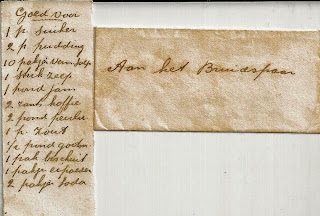 Goed voor
1 p. suiker
2 p. pudding
10 pakjes
1 stuk zeep
1 pond jam
2 ons koffie
2 pond
1 p. zout
1/2 pond
1 pak biscuit
1 pakje
2 pakjes soda
Aan het Bruidspaar